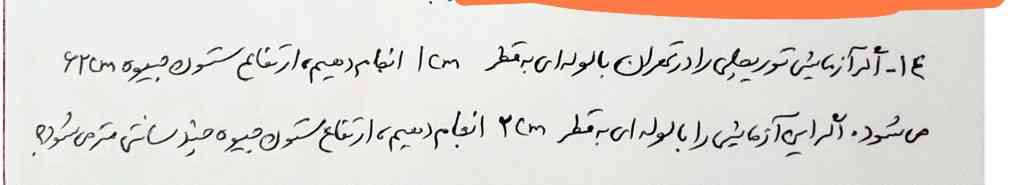 ۱۴- اگر آزمایش توریچلی را در تهران با لوله ای به قطر ۱cm انجام دهیم، ارتفاع ستون جیوه ۶۲cm
می شود. اگر این آزمایش را با لوله ای به قطر ۲cm انجام دهیم، ارتفاع ستون جیوه چند سانتی متر می شود؟